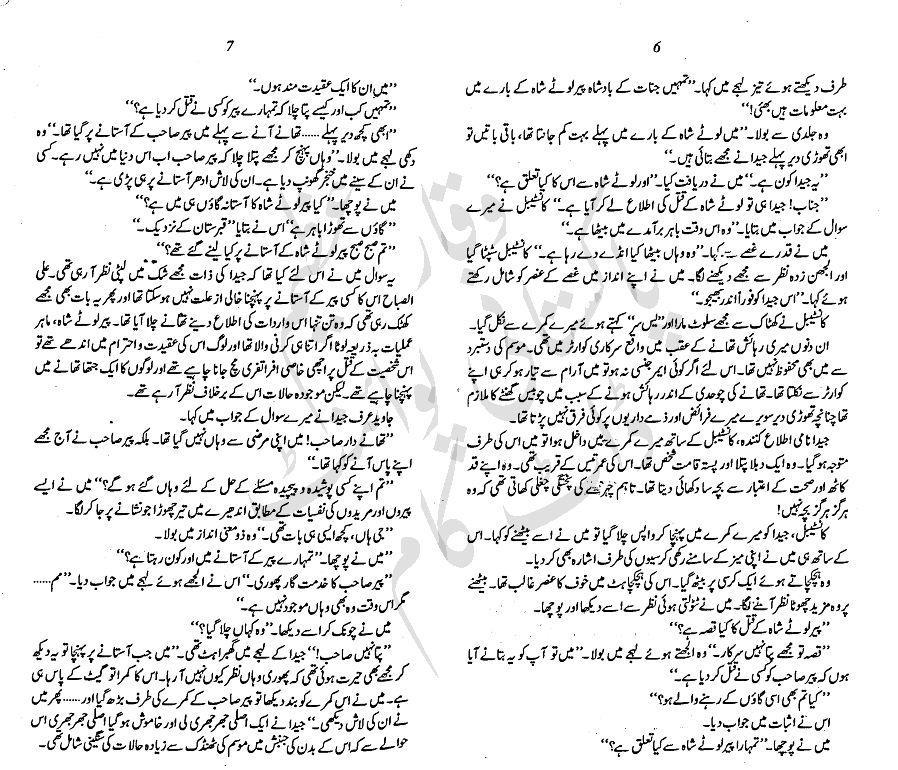 6
طرف دیکھتے ہوئے تیز لہجے میں کہا۔ ’’تمہیں جنات کے بادشاہ پیر لوٹے شاہ کے بارے میں
بہت معلومات ہیں بھئی!‘‘
وہ جلدی سے بولا۔ ’’میں لوٹے شاہ کے بارے میں پہلے بہت کم جانتا تھا، باقی باتیں تو
ابھی تھوڑی دیر پہلے جیدا نے مجھے بتائی ہیں۔‘‘
’’یہ جیدا کون ہے۔‘‘ میں نے دریافت کیا۔ ’’اور لوٹے شاہ سے اس کا کیا تعلق ہے؟‘‘
’’جناب! جیدا ہی تو لوٹے شاہ کے قتل کی اطلاع لے کر آیا ہے۔‘‘ کانسٹیبل نے میرے
سوال کے جواب میں بتایا۔ ’’وہ اس وقت باہر برآمدے میں بیٹھا ہے۔‘‘
میں نے قدرے غصے سے کہا۔ ’’وہ وہاں بیٹھا کیا انڈے دے رہا ہے۔‘‘ کانسٹیبل سٹپٹا گیا
اور الجھن زدہ نظر سے مجھے دیکھنے لگا۔ میں نے اپنے انداز میں غصے کے عنصر کو شامل رکھتے
ہوئے کہا۔ ’’اس جیدا کو فوراً اندر بھیجو۔‘‘
کانسٹیبل نے کھٹاک سے مجھے سلوٹ مارا اور ’’یس سر‘‘ کہتے ہوئے میرے کمرے سے نکل گیا۔
ان دنوں میری رہائش تھانے کے عقب میں واقع سرکاری کوارٹر میں تھی۔ موسم کی دستبرد
سے میں بھی محفوظ نہیں تھا۔ اس لئے اگر کوئی ایمرجنسی نہ ہو تو میں آرام سے تیار ہو کر ہی اپنے
کوارٹر سے نکلتا تھا۔ تھانے کی چوحدی کے اندر رہائش ہونے کے سبب میں چوبیس گھنٹے کا ملازم
تھا چنانچہ تھوڑی دیر سویرے میرے فرائض اور ذمے داریوں پر کوئی فرق نہیں پڑتا تھا۔
جیدا نامی اطلاع کنندہ، کانسٹیبل کے ساتھ میرے کمرے میں داخل ہوا تو میں اس کی طرف
متوجہ ہو گیا۔ وہ ایک دبلا پتلا اور پستہ قامت شخص تھا۔ اس کی عمر تیس کے قریب تھی۔ وہ اپنے قد
کاٹھ اور صحت کے اعتبار سے بچہ سا دکھائی دیتا تھا۔ تاہم چہرے کی پختگی چغلی کھاتی تھی کہ وہ
ہرگز ہرگز بچہ نہیں!
کانسٹیبل، جیدا کو میرے کمرے میں پہنچا کر واپس چلا گیا تو میں نے اسے بیٹھنے کو کہا۔ اس
کے ساتھ ہی میں نے اپنی میز کے سامنے رکھی کرسیوں کی طرف اشارہ بھی کر دیا۔
وہ ہچکچاتے ہوئے ایک کرسی پر بیٹھ گیا۔ اس کی ہچکچاہٹ میں خوف کا عنصر غالب تھا۔ بیٹھنے
پر وہ مزید چھوٹا نظر آنے لگا۔ میں نے ٹٹولتی ہوئی نظر سے اسے دیکھا اور پوچھا۔
’’پیر لوٹے شاہ کے قتل کا کیا قصہ ہے؟‘‘
’’قصہ تو مجھے پتا نہیں سرکار۔‘‘ وہ الجھتے ہوئے لہجے میں بولا۔ ’’میں تو آپ کو یہ بتانے آیا
ہوں کہ پیر صاحب کو کسی نے قتل کر دیا ہے۔‘‘
’’کیا تم بھی اسی گاؤں کے رہنے والے ہو؟‘‘
اس نے اثبات میں جواب دیا۔
میں نے پوچھا۔ ’’تمہارا پیر لوٹے شاہ سے کیا تعلق ہے؟‘‘
7
’’میں ان کا ایک عقیدت مند ہوں۔‘‘
’’تمہیں کب اور کیسے پتا چلا کہ تمہارے پیر کو کسی نے قتل کر دیا ہے؟‘‘
’’ابھی کچھ دیر پہلے...... تھانے آنے سے پہلے میں پیر صاحب کے آستانے پر گیا تھا۔‘‘ وہ
دکھی لہجے میں بولا۔ ’’وہاں پہنچ کر مجھے پتلا چلا کہ پیر صاحب اب اس دنیا میں نہیں رہے۔ کسی
نے ان کے سینے میں خنجر گھونپ دیا ہے۔ ان کی لاش ادھر آستانے پر ہی پڑی ہے۔‘‘
میں نے پوچھا۔ ’’کیا پیر لوٹے شاہ کا آستانہ گاؤں ہی میں ہے؟‘‘
’’گاؤں سے تھوڑا باہر ہے‘‘ اس نے بتایا ’’قبرستان کے نزدیک۔‘‘
’’تم صبح صبح پیر لوٹے شاہ کے آستانے پر کیا لینے گئے تھے؟‘‘
یہ سوال میں نے اس لئے کیا تھا کہ جیدا کی ذات مجھے شک میں لپٹی نظر آ رہی تھی۔ علی
الصباح اس کا کسی پیر کے آستانے پر پہنچنا خالی از علت نہیں ہو سکتا تھا اور پھر یہ بات بھی مجھے
کھٹک رہی تھی کہ وہ تن تنہا اس واردات کی اطلاع دینے تھانے چلا آیا تھا۔ پیر لوٹے شاہ، ماہر
عملیات بہ ذریعہ لوٹا اگر اتنا ہی کرنی والا تھا اور لوگ اس کی عقیدت و احترام میں اندھے تھے تو
اس شخصیت کے قتل پر اچھی خاصی افراتفری مچ جانا چاہیے تھی اور لوگوں کا ایک جتھا تھانے میں
پہنچنا چاہیے تھا۔ لیکن موجودہ حالات اس کے برخلاف نظر آ رہے تھے۔
جاوید عرف جیدا نے میرے سوال کے جواب میں کہا۔
’’تھانے دار صاحب! میں اپنی مرضی سے وہاں نہیں گیا تھا۔ بلکہ پیر صاحب نے آج مجھے
اپنے پاس آنے کو کہا تھا۔‘‘
’’تم اپنے کسی پوشیدہ و پیچیدہ مسئلے کے حل کے لئے وہاں گئے ہو گے؟‘‘ میں نے ایسے
پیروں اور مریدوں کی نفسیات کے مطابق اندھیرے میں تیر چھوڑا جو نشانے پر جا کر لگا۔
’’جی ہاں، کچھ ایسی ہی بات تھی۔‘‘ وہ ذومعنی انداز میں بولا۔
’’میں نے پوچھا۔ ’’تمہارے پیر کے آستانے میں اور کون رہتا ہے؟‘‘
’’پیر صاحب کا خدمت گار پھوری۔‘‘ اس نے الجھے ہوئے لہجے میں جواب دیا۔ ’’مم......
مگر اس وقت وہ بھی وہاں موجود نہیں ہے۔‘‘
میں نے چونک کر اسے دیکھا۔ ’’وہ کہاں چلا گیا؟‘‘
’’پتا نہیں صاحب!‘‘ جیدا کے لہجے میں گھبراہٹ تھی۔ ’’میں جب آستانے پر پہنچا تو یہ دیکھ
کر مجھے بھی حیرت ہوئی تھی کہ پھوری وہاں نظر کیوں نہیں آ رہا۔ اس کا کمرا تو گیٹ کے پاس ہی
ہے۔ میں نے اس کمرے کو بند دیکھا تو پیر صاحب کے کمرے کی طرف بڑھ گیا اور...... پھر میں
نے ان کی لاش دیکھی۔‘‘ جیدا نے ایک اصلی جھرجھری لی اور خاموش ہو گیا اصلی جھرجھری اس
حوالے سے کہ اس کے بدن کی جنبش میں موسم کی ٹھنڈک سے زیادہ حالات کی سنگینی شامل تھی۔